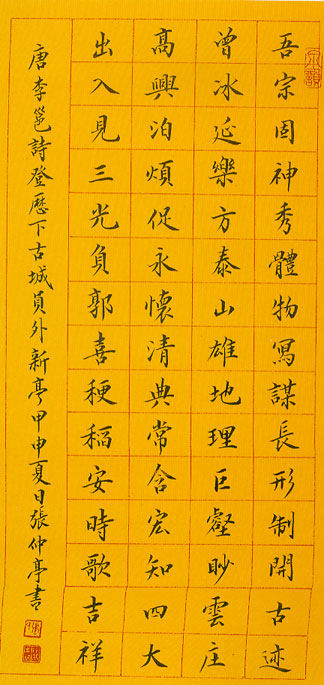 吾宗固神秀體物寫謀長形制開古迹
曾冰延樂方泰山雄地理巨壑眇雲庄
高興泊煩促永懷清典常含宏知四大
出入見三光負郭喜稉稻安時歌吉祥
唐李邕詩登歷下古城員外新亭甲申夏日張仲亭書